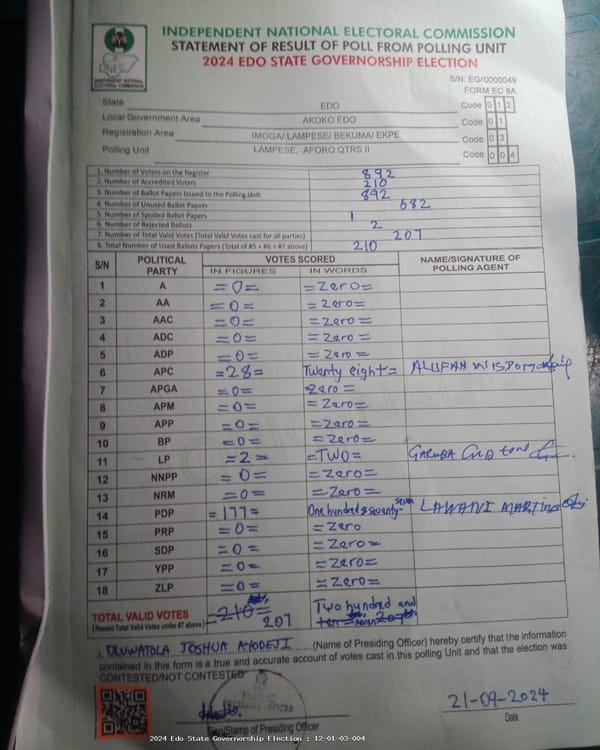 INDEPENDENT NATIONAL ELECTORAL COMMISSION
STATEMENT OF RESULT OF POLL FROM POLLING UNIT
2024 EDO STATE GOVERNORSHIP ELECTION
INEC
INDEPENDENT NATIONAL ELECTORAL COMMISSION
S/N: EG/0000049
FORM EC 8A
State EDO Code 0 1 2
Local Government Area AKOKO EDO Code 0 1
Registration Area IMOGA/ LAMPESE/ BEKUMA/ EKPE Code 0 3
Polling Unit LAMPESE, AFORO QTRS II Code 0 0 4
1. Number of Voters on the Register 892
2. Number of Accredited Voters 210
3. Number of Ballot Papers Issued to the Polling Unit 892
4. Number of Unused Ballot Papers 682
5. Number of Spoiled Ballot Papers 1
6. Number of Rejected Ballots 2
7. Number of Total Valid Votes (Total Valid Votes cast for all parties) 207
8. Total Number of Used Ballots Papers (Total of #5 + #6 + #7 above) 210
S/N POLITICAL PARTY VOTES SCORED NAME/SIGNATURE OF POLLING AGENT
IN FIGURES IN WORDS
1 A =0= =Zero=
2 AA =0= =Zero=
3 AAC =0= =Zero=
4 ADC =0= =Zero=
5 ADP =0= =Zero=
6 APC =28= Twenty eight=
7 APGA =0= Zero=
8 APM =0= =Zero=
9 APP =0= =Zero=
10 BP =0= =Zero=
11 LP =2= =TWO= GARUBA
12 NNPP =0= =Zero=
13 NRM =0= =Zero=
14 PDP =177= One hundred & seventy-seven LAWANI MARTINS
15 PRP =0= =Zero
16 SDP =0= =Zero=
17 YPP =0= =Zero=
18 ZLP =0= =Zero=
TOTAL VALID VOTES =210= 207 Two hundred and
(Record Total Valid Votes under #7 above)
I, OLUWATOLA JOSHUA AYODEJI (Name of Presiding Officer) hereby certify that the information
contained in this form is a true and accurate account of votes cast in this polling Unit and that the election was
CONTESTED/NOT CONTESTED
21-09-2024
Sign/Stamp of Presiding Officer Date
2024 Edo State Governorship Election : 12-01-03-004